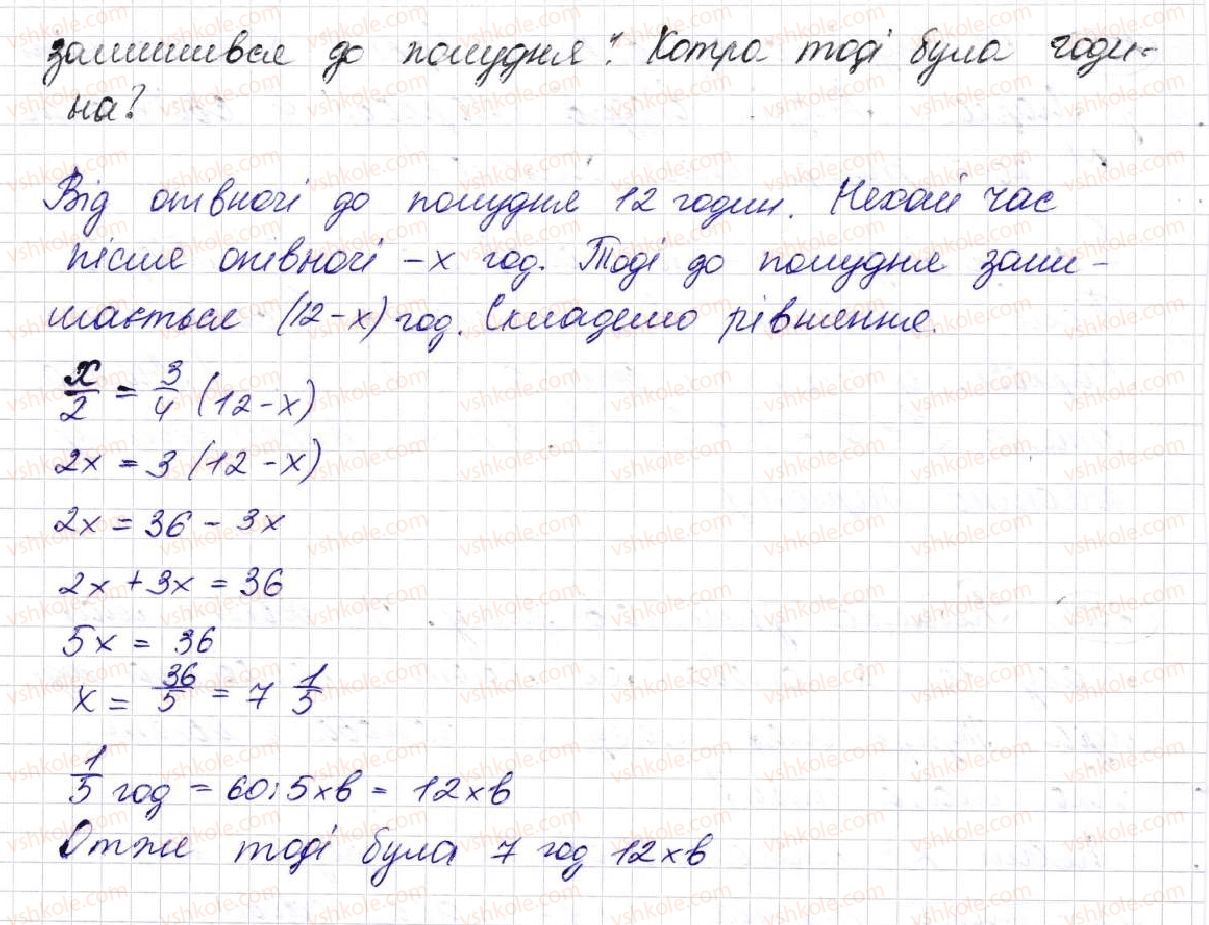 залишився до полудня". Котра тоді була годи-
на?
Від опівночі до полудня 12 годин. Нехай час
після опівночі - x год. Тоді до полудня зали-
шається (12-x) год. Складемо рівняння.
x/2 = 3/4 (12-x)
2x = 3 (12-x)
2x = 36 - 3x
2x + 3x = 36
5x = 36
x = 36/5 = 7 1/5
1/5 год = 60:5хв = 12хв
Отже тоді була 7 год 12хв